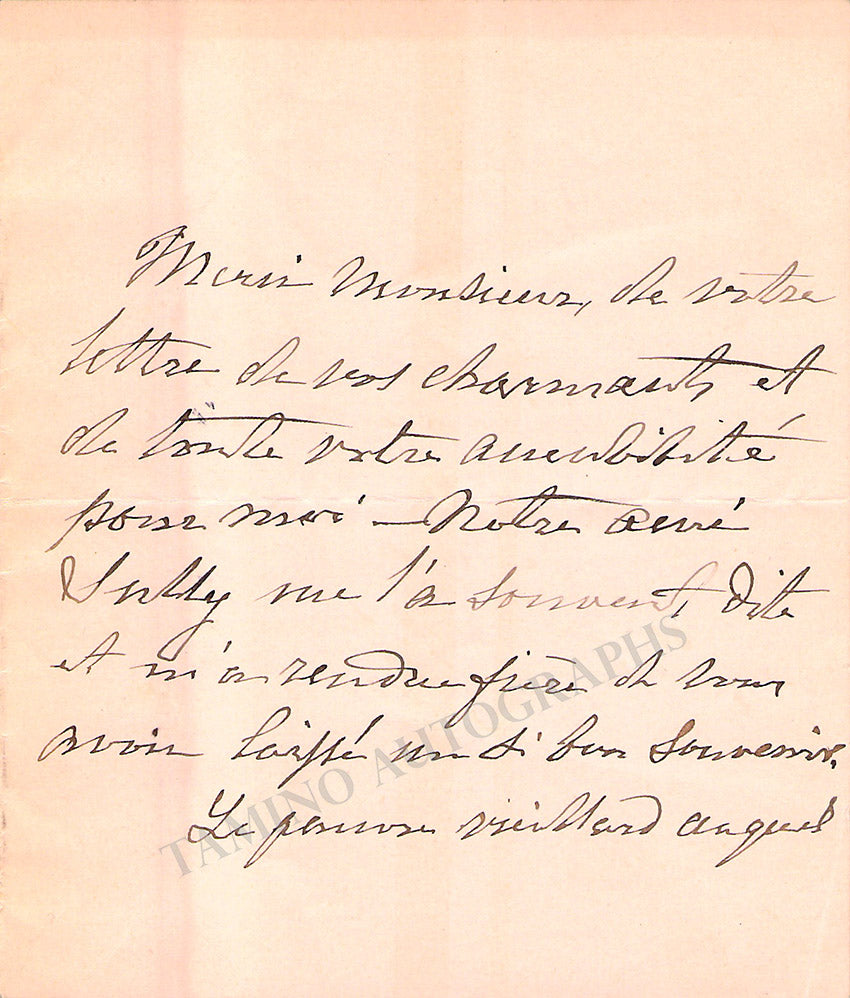 Merci Monsieur, de votre
lettre de vos charmants et
de toute votre amabilité
pour moi — Notre ami
Sully me l'a souvent dite
et m'a rendue fière de vous
avoir laissé un si bon souvenir.
Le pauvre vieillard auquel
TAMINO AUTOGRAPHS